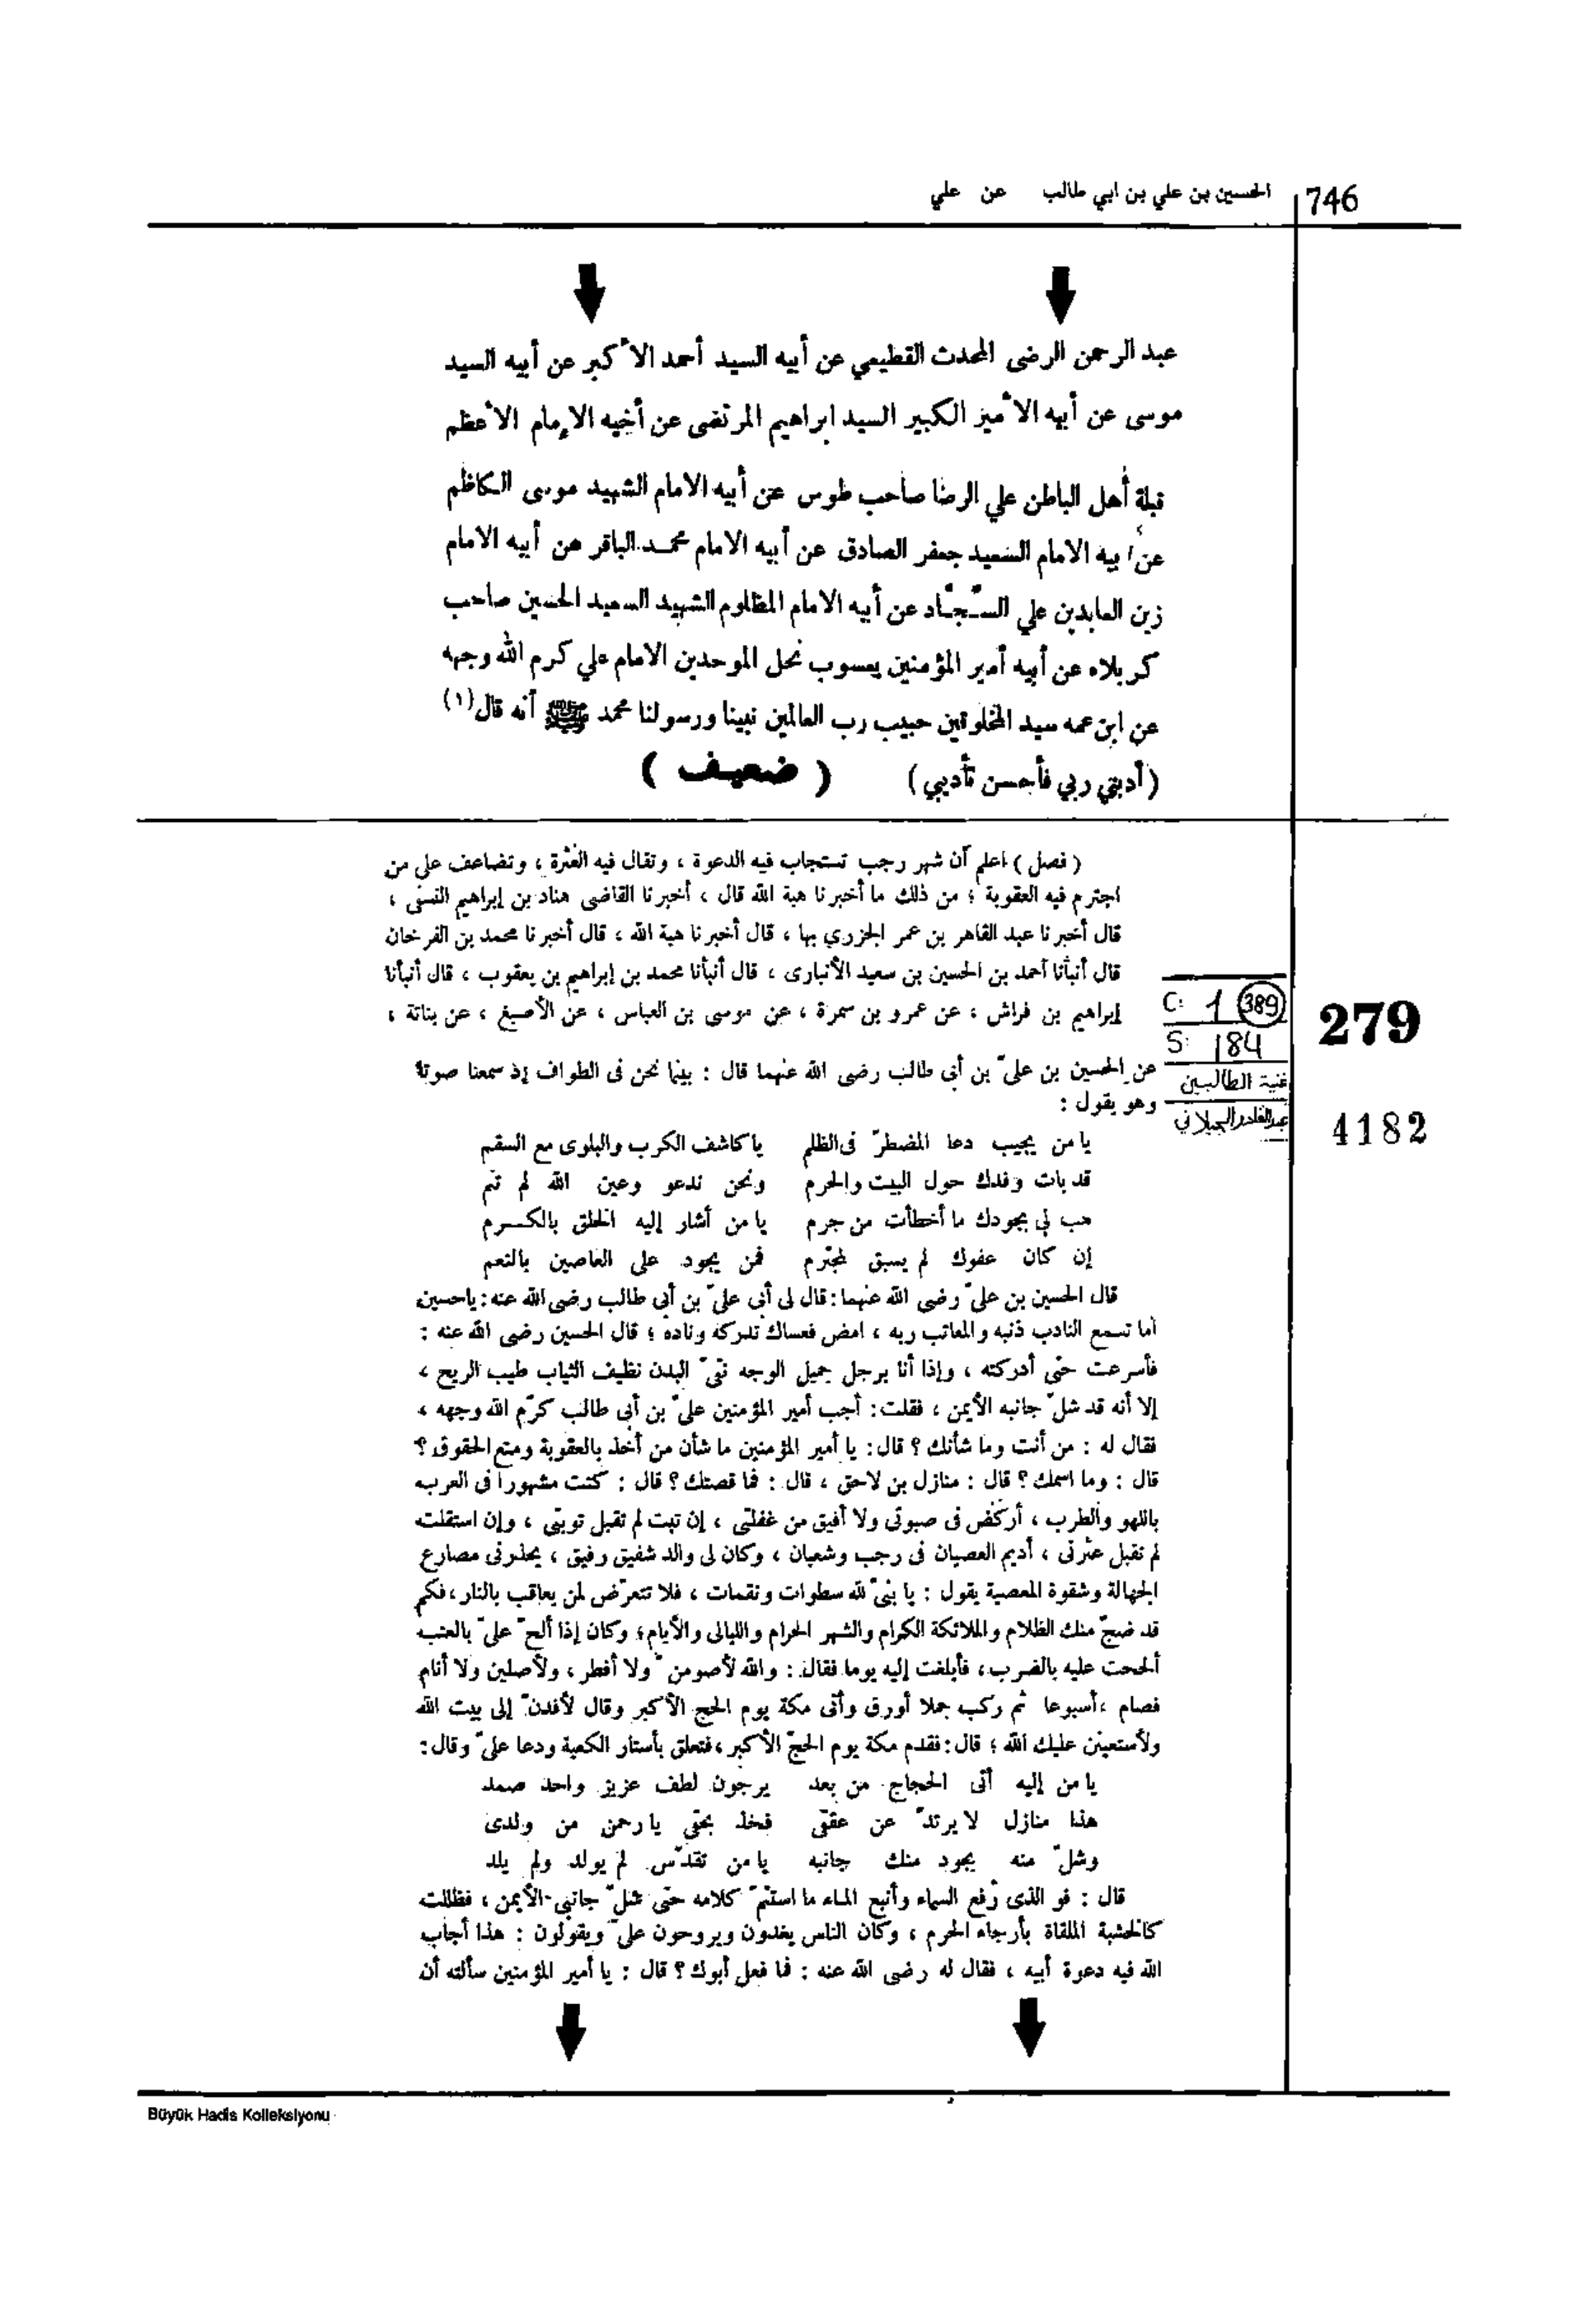 746
الحسين بن علي بن ابي طالب عن علي
عبد الرحمن الرضى المحدث القطيعي عن أبيه السيد أحمد الأكبر عن أبيه السيد
موسى عن أبيه الأمير الكبير السيد ابراهيم المرتضى عن أخيه الإمام الأعظم
قبلة أهل الباطن علي الرضا صاحب طوس عن أبيه الامام الشهيد موسى الكاظم
عن أبيه الامام السعيد جعفر الصادق عن أبيه الامام محمد الباقر عن أبيه الامام
زين العابدين علي السجّاد عن أبيه الامام المظلوم الشهيد السعيد الحسين صاحب
كربلاء عن أبيه أمير المؤمنين يعسوب نحل الموحدين الامام علي كرم الله وجهه
عن ابن عمه سيد المخلوقين حبيب رب العالمين نبينا ورسولنا محمد ﷺ أنه قال (١)
(أدبني ربي فأحسن تأديبي) (ضعيف)
(فصل) اعلم أن شهر رجب تستجاب فيه الدعوة ، وتقال فيه العثرة ، وتضاعف على من
اجترم فيه العقوبة ؛ من ذلك ما أخبرنا هبة الله قال ، أخبرنا القاضى هناد بن إبراهيم النسفى ،
قال أخبرنا عبد القاهر بن عمر الجزري بها ، قال أخبرنا هبة الله ، قال أخبرنا محمد بن الفرخان
قال أنبأنا أحمد بن الحسين بن سعيد الأنبارى ، قال أنبأنا محمد بن إبراهيم بن يعقوب ، قال أنبأنا
إبراهيم بن فراش ، عن عمرو بن سمرة ، عن موسى بن العباس ، عن الأصبغ ، عن بناتة ،
C: 1 (389)
S: 184
غنية الطالبين
عبد القادر الجيلاني
279
4182
عن الحسين بن علىّ بن أبى طالب رضى الله عنهما قال : بينما نحن فى الطواف إذ سمعنا صوتا
وهو يقول :
يا من يجيب دعا المضطرّ فى الظلم يا كاشف الكرب والبلوى مع السقم
قد بات وفدك حول البيت والحرم ونحن ندعو وعين الله لم تنم
هب لى بجودك ما أخطأت من جرم يا من أشار إليه الخلق بالكرم
إن كان عفوك لم يسبق لمجترم فمن يجود على العاصين بالنعم
قال الحسين بن علىّ رضى الله عنهما : قال لى أبى علىّ بن أبى طالب رضى الله عنه : يا حسين
أما تسمع النادب ذنبه والمعاتب ربه ، امض فعساك تدركه وناده ؛ قال الحسين رضى الله عنه :
فأسرعت حتى أدركته ، وإذا أنا برجل جميل الوجه نقىّ البدن نظيف الثياب طيب الريح ،
إلا أنه قد شلّ جانبه الأيمن ، فقلت : أجب أمير المؤمنين علىّ بن أبى طالب كرّم الله وجهه ،
فقال له : من أنت وما شأنك ؟ قال : يا أمير المؤمنين ما شأن من أخذ بالعقوبة ومنع الحقوق ؟
قال : وما اسمك ؟ قال : منازل بن لاحق ، قال : فما قصتك ؟ قال : كنت مشهورا فى العرب
باللهو والطرب ، أركض فى صبوتى ولا أفيق من غفلتى ، إن تبت لم تقبل توبتى ، وإن استقلت
لم تقبل عثرتى ، أديم العصيان فى رجب وشعبان ، وكان لى والد شفيق رفيق ، يحذرنى مصارع
الجهالة وشقوة المعصية يقول : يا بنىّ لله سطوات ونقمات ، فلا تتعرّض لمن يعاقب بالنار ، فكم
قد ضجّ منك الظلام والملائكة الكرام والشهر الحرام والليالى والأيام ؛ وكان إذا ألحّ علىّ بالعتب
ألححت عليه بالضرب ، فأبلغت إليه يوما فقال : والله لأصومنّ ولا أفطر ، ولأصلين ولا أنام
فصام أسبوعا ثم ركب جملا أورق وأتى مكة يوم الحج الأكبر وقال لأفدنّ إلى بيت الله
ولأستعينن عليك الله ؛ قال : فقدم مكة يوم الحجّ الأكبر ، فتعلق بأستار الكعبة ودعا علىّ وقال :
يا من إليه أتى الحجاج من بعد يرجون لطف عزيز واحد صمد
هذا منازل لا يرتدّ عن عققى فخذ بحقى يا رحمن من ولدى
وشلّ منه بجود منك جانبه يا من تقدّس لم يولد ولم يلد
قال : فو الذى رفع السماء وأنبع الماء ما استتمّ كلامه حتى شلّ جانبى الأيمن ، فظللت
كالخشبة الملقاة بأرجاء الحرم ، وكان الناس يغدون ويروحون علىّ ويقولون : هذا أجاب
الله فيه دعوة أبيه ، فقال له رضى الله عنه : فما فعل أبوك ؟ قال : يا أمير المؤمنين سألته أن
Büyük Hadis Kolleksiyonu